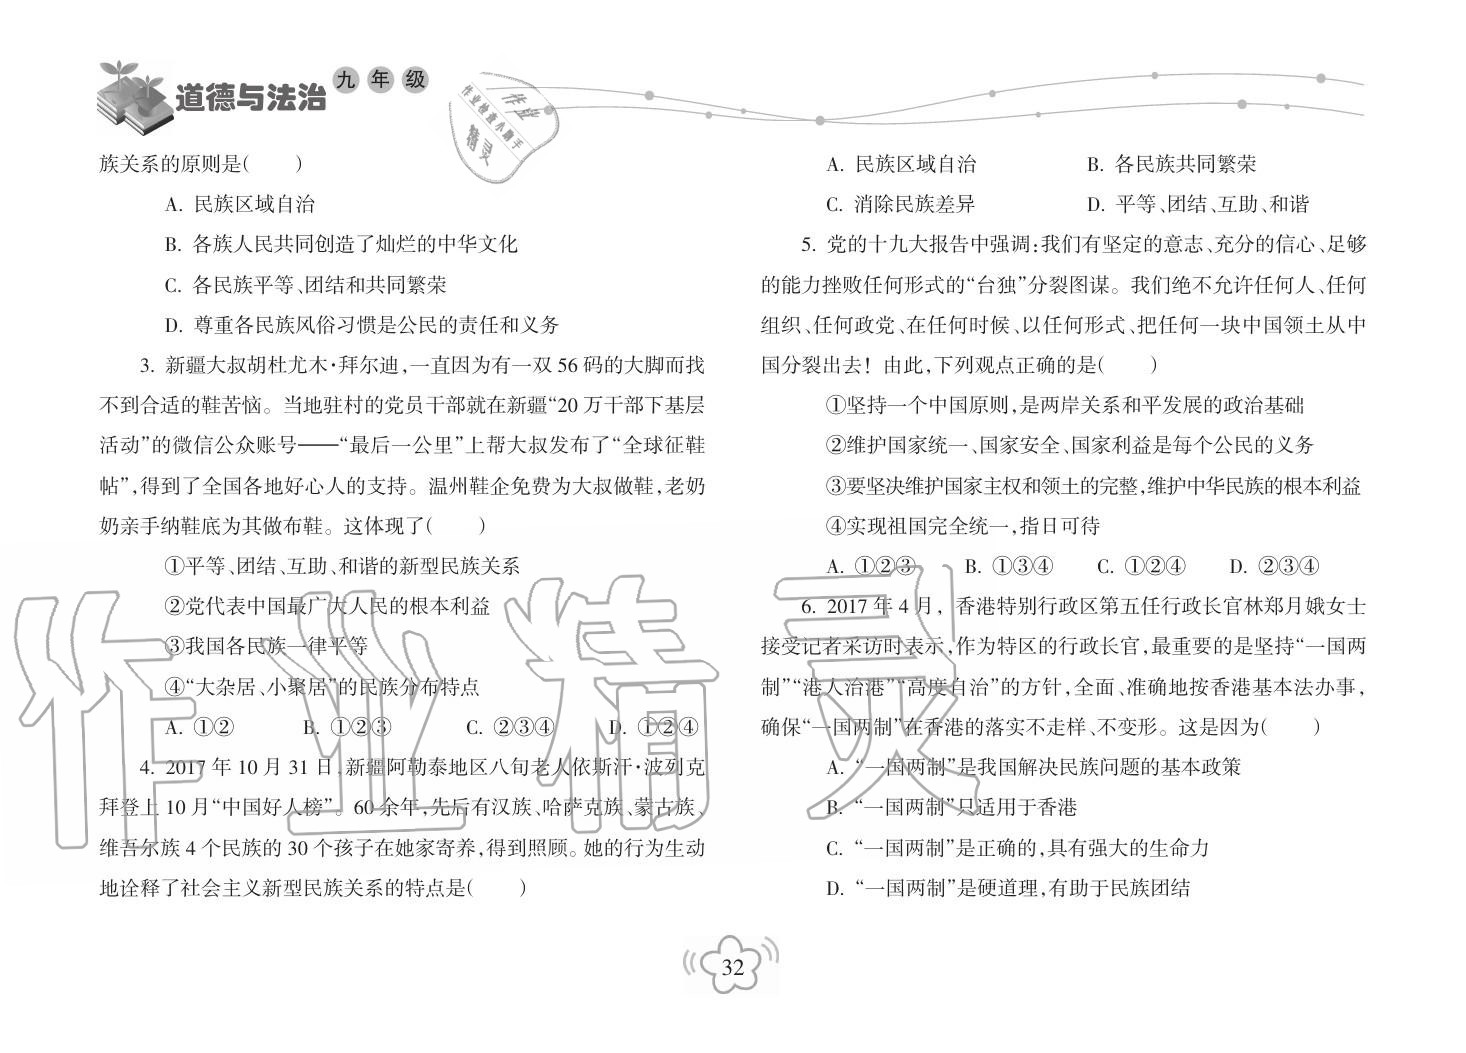 道德与法治 九年级
作业检查小助手
作业
精灵
族关系的原则是(　　)
A. 民族区域自治
B. 各族人民共同创造了灿烂的中华文化
C. 各民族平等、团结和共同繁荣
D. 尊重各民族风俗习惯是公民的责任和义务
3. 新疆大叔胡杜尤木·拜尔迪,一直因为有一双 56 码的大脚而找
不到合适的鞋苦恼。当地驻村的党员干部就在新疆“20 万干部下基层
活动”的微信公众账号——“最后一公里”上帮大叔发布了“全球征鞋
帖”,得到了全国各地好心人的支持。温州鞋企免费为大叔做鞋,老奶
奶亲手纳鞋底为其做布鞋。这体现了(　　)
①平等、团结、互助、和谐的新型民族关系
②党代表中国最广大人民的根本利益
③我国各民族一律平等
④“大杂居、小聚居”的民族分布特点
A. ①②　B. ①②③　C. ②③④　D. ①②④
4. 2017 年 10 月 31 日,新疆阿勒泰地区八旬老人依斯汗·波列克
拜登上 10 月“中国好人榜”。60 余年,先后有汉族、哈萨克族、蒙古族、
维吾尔族 4 个民族的 30 个孩子在她家寄养,得到照顾。她的行为生动
地诠释了社会主义新型民族关系的特点是(　　)
A. 民族区域自治　B. 各民族共同繁荣
C. 消除民族差异　D. 平等、团结、互助、和谐
5. 党的十九大报告中强调:我们有坚定的意志、充分的信心、足够
的能力挫败任何形式的“台独”分裂图谋。我们绝不允许任何人、任何
组织、任何政党、在任何时候、以任何形式、把任何一块中国领土从中
国分裂出去！由此,下列观点正确的是(　　)
①坚持一个中国原则,是两岸关系和平发展的政治基础
②维护国家统一、国家安全、国家利益是每个公民的义务
③要坚决维护国家主权和领土的完整,维护中华民族的根本利益
④实现祖国完全统一,指日可待
A. ①②③　B. ①③④　C. ①②④　D. ②③④
6. 2017 年 4 月, 香港特别行政区第五任行政长官林郑月娥女士
接受记者采访时表示,作为特区的行政长官,最重要的是坚持“一国两
制”“港人治港”“高度自治”的方针,全面、准确地按香港基本法办事,
确保“一国两制”在香港的落实不走样、不变形。这是因为(　　)
A. “一国两制”是我国解决民族问题的基本政策
B. “一国两制”只适用于香港
C. “一国两制”是正确的,具有强大的生命力
D. “一国两制”是硬道理,有助于民族团结
32
作业精灵